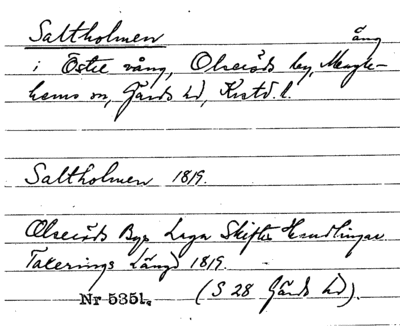 Saltholmen äng
i Östre vång, Olseröds by, Maglehems sn, Gärds hd, Krstd. l.
Saltholmen 1819.
Olseröds Bys Laga Skiftes Handlingar
Taxerings Längd 1819.
Nr 5351. (S 28 Gärds hd).